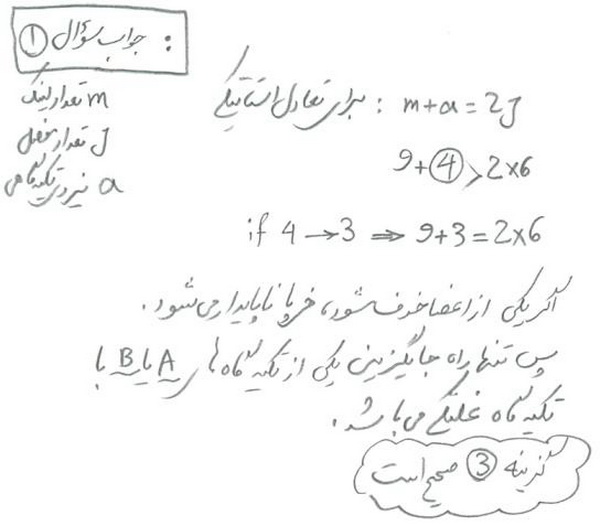 جواب سؤال ① :
m تعداد لینک
J تعداد مفصل
a نیروی تکیه گاهی
برای تعادل استاتیکی : m+a=2J
9+④>2×6
if 4→3 ⇒ 9+3=2×6
اگر یکی از اعضا حذف شود، خرپا ناپایدار می شود.
پس تنها راه جایگزینی یکی از تکیه گاه های A یا B با
تکیه گاه غلتکی می باشد.
گزینه ③ صحیح است